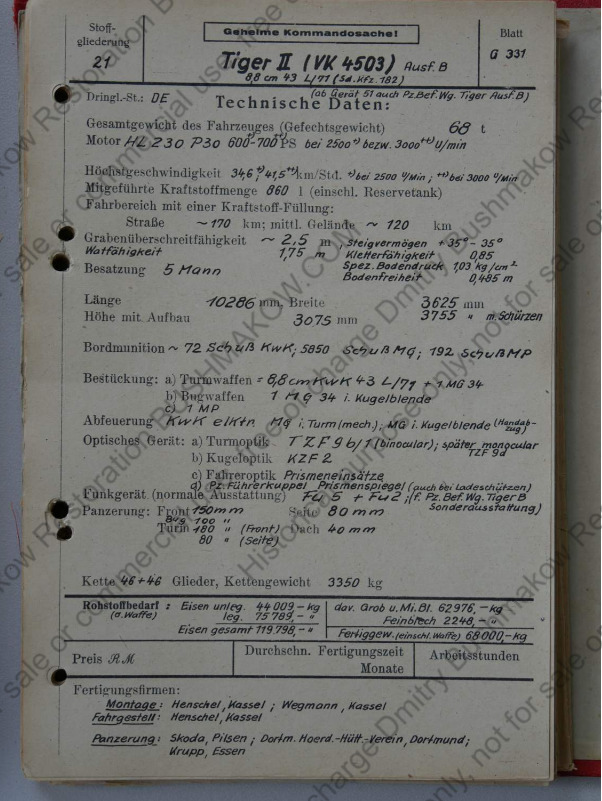 Stoff-
gliederung
21
Geheime Kommandosache!
Tiger II (VK 4503) Ausf. B
8,8 cm 43 L/71 (Sd.Kfz. 182)
Blatt
G 331
Dringl.-St.: DE
(ab Gerät 51 auch Pz.Bef.Wg. Tiger Ausf. B)
Technische Daten:
Gesamtgewicht des Fahrzeuges (Gefechtsgewicht) 68 t
Motor HL 230 P30 600+)-700++) PS bei 2500+) bezw. 3000++) U/min
Höchstgeschwindigkeit 34,6+) 41,5++) km/Std. +) bei 2500 U/Min; ++) bei 3000 U/Min
Mitgeführte Kraftstoffmenge 860 l (einschl. Reservetank)
Fahrbereich mit einer Kraftstoff-Füllung:
Straße ~ 170 km; mittl. Gelände ~ 120 km
Grabenüberschreitfähigkeit ~ 2,5 m, Steigvermögen + 35° - 35°
Watfähigkeit 1,75 m Kletterfähigkeit 0,85
Besatzung 5 Mann Spez. Bodendruck 1,03 kg/cm²
Bodenfreiheit 0,485 m
Länge 10286 mm, Breite 3625 mm
Höhe mit Aufbau 3075 mm 3755 " m. Schürzen
Bordmunition ~ 72 Schuß KwK; 5850 Schuß MG; 192 Schuß MP
Bestückung: a) Turmwaffen = 8,8 cm KwK 43 L/71 + 1 MG 34
b) Bugwaffen 1 MG 34 i. Kugelblende
c) 1 MP
Abfeuerung KwK elktr. MG i. Turm (mech.); MG i. Kugelblende (Handab-
zug)
Optisches Gerät: a) Turmoptik TZF 9 b/1 (binocular); später monocular
TZF 9d
b) Kugeloptik KZF 2
c) Fahreroptik Prismeneinsätze
d) Pz. Führerkuppel Prismenspiegel (auch bei Ladeschützen)
Funkgerät (normale Ausstattung) Fu 5 + Fu 2; (f. Pz. Bef. Wg. Tiger B
Sonderausstattung)
Panzerung: Front 150 mm Seite 80 mm
Bug 100 "
Turm 180 " (Front) Dach 40 mm
80 " (Seite)
Kette 46+46 Glieder, Kettengewicht 3350 kg
Rohstoffbedarf: Eisen unleg. 44 009 - kg
(o. Waffe) leg. 75 789,- "
Eisen gesamt 119.798,- "
dav. Grob u. Mi. Bl. 62 976,- kg
Feinblech 2248,- "
Fertiggew. (einschl. Waffe) 68 000,- kg
Preis RM
Durchschn. Fertigungszeit
Monate
Arbeitsstunden
Fertigungsfirmen:
Montage: Henschel, Kassel; Wegmann, Kassel
Fahrgestell: Henschel, Kassel
Panzerung: Skoda, Pilsen; Dortm. Hoerd.-Hütt.-Verein, Dortmund;
Krupp, Essen